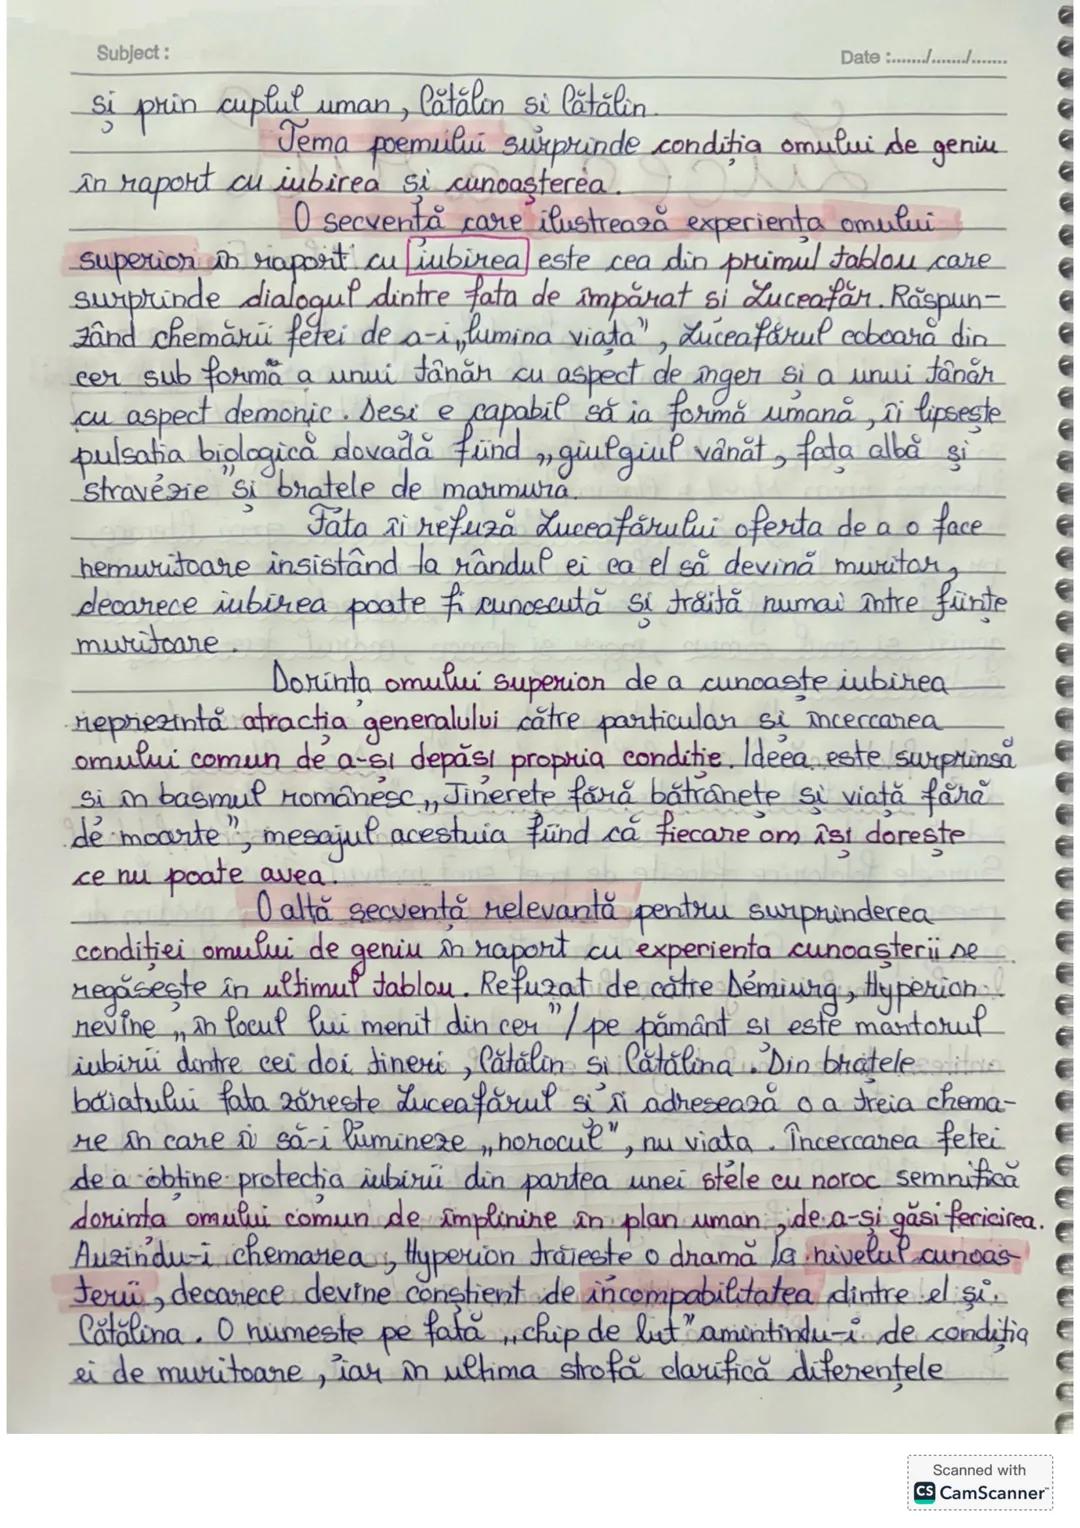 Subject :
Date :......./......./.......
și prin cuplul uman, Cătălin si Cătălin.
Tema poemului surprinde condiția omului de geniu
în raport cu iubirea și cunoașterea.
O secvență care ilustrează experiența omului
superior în raport cu iubirea este cea din primul tablou care
surprinde dialogul dintre fata de împărat si Luceafăr. Răspun-
zând chemării fetei de a-i „lumina viața", Luceafărul coboară din
cer sub formă a unui tânăr cu aspect de înger si a unui tânăr
cu aspect demonic. Desi e capabil să ia formă umană, îi lipsește
pulsația biologică dovadă fiind „giulgiul vânăt, fața albă și
stravezie" și brațele de marmura.
Fata îi refuză Luceafărului oferta de a o face
nemuritoare insistând la rândul ei ca el să devină muritor,
deoarece iubirea poate fi cunoscută și trăită numai între ființe
muritoare.
Dorința omului superior de a cunoaște iubirea
reprezintă atracția generalului către particular si încercarea
omului comun de a-și depăși propria condiție. Ideea este surprinsă
si în basmul românesc „Tinerețe fără bătrânețe și viață fără
de moarte", mesajul acestuia fiind că fiecare om își dorește
ce nu poate avea.
O altă secvență relevantă pentru surprinderea
condiției omului de geniu în raport cu experiența cunoașterii se
regăsește în ultimul tablou. Refuzat de către Demiurg, Hyperion
revine „în locul lui menit din cer"/ pe pământ si este martorul
iubirii dintre cei doi tineri, Cătălin si Cătălina. Din brațele
băiatului fata zărește Luceafărul si îi adresează o a treia chema-
re în care îi să-i lumineze „norocul", nu viața. Încercarea fetei
de a obține protecția iubirii din partea unei stele cu noroc semnifică
dorința omului comun de împlinire în plan uman, de a-și găsi fericirea.
Auzindu-i chemarea, Hyperion trăiește o dramă la nivelul cunoaș-
terii, deoarece devine conștient de incompabilitatea dintre el și
Cătălina. O numește pe fată „chip de lut" amintindu-i de condiția
ei de muritoare, iar în ultima strofă clarifică diferențele
Scanned with
CS CamScanner